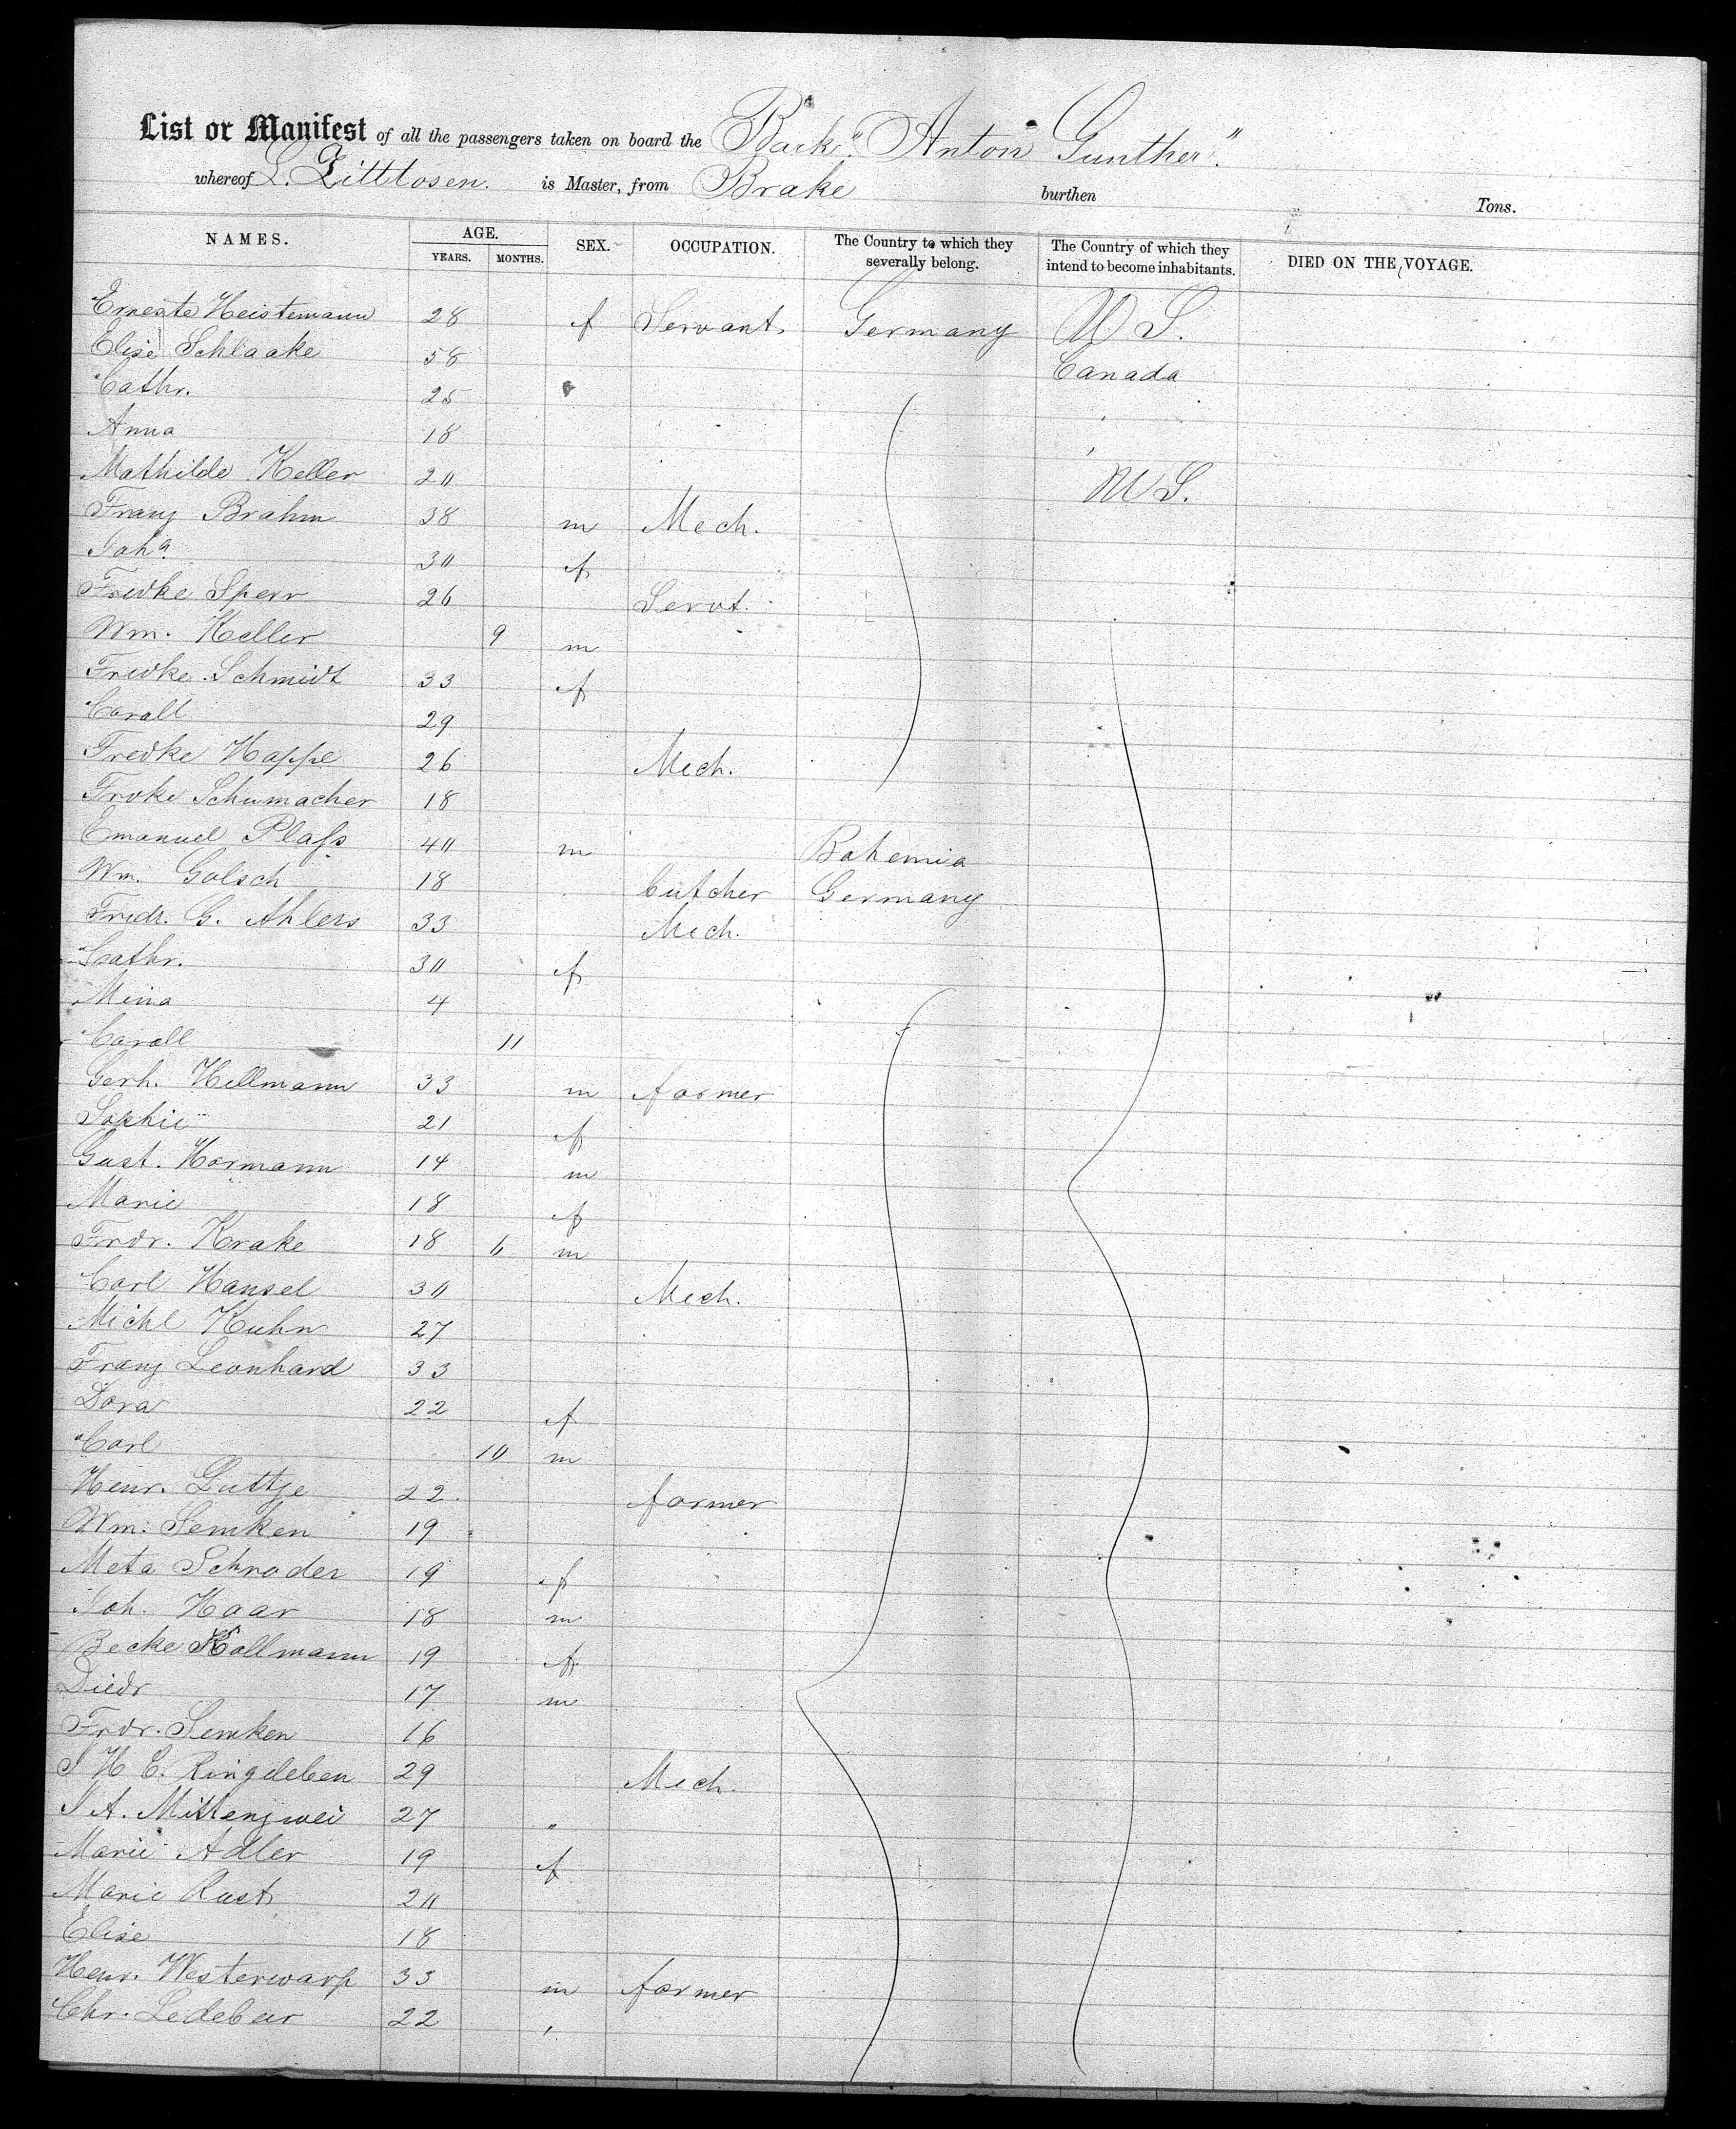 List or Manifest of all the passengers taken on board the Bark "Anton Gunther".
whereof L. Zittlosen. is Master, from Brake burthen Tons.
NAMES. AGE. YEARS. MONTHS. SEX. OCCUPATION. The Country to which they severally belong. The Country of which they intend to become inhabitants. DIED ON THE VOYAGE.
Erneste Heistemann 28 f Servant. Germany U S.
Elise Schlaake 58 Canada
Cathr. 25
Anna 18 "
Mathilde Keller 20 U S.
Franz Brahm 38 m Mech.
Joha 30 f
Fredke Sperr 26 Servt.
Wm. Keller 9 m
Fredke Schmidt 33 f
Caroll 29
Fredke Happe 26 Mech.
Frdke Schumacher 18
Emanuel Plass 40 m Bohemia
Wm. Golsch 18 butcher Germany
Fredr. G. Ahlers 33 Mech.
Cathr. 30 f
Mina 4
Caroll 11
Gerh. Hellmann 33 m farmer
Sophie 21 f
Gust. Hormann 14 m
Marie 18 f
Frdr. Krake 18 " m
Carl Hansel 30 Mech.
Michl Kuhn 27
Franz Leonhard 33
Dora 22 f
Carl 10 m
Henr. Luttje 22. farmer
Wm. Semken 19
Meta Schroder 19 f
Joh. Haar 18 m
Becke Kollmann 19 f
Diedr 17 m
Frdr. Semken 16
J H C. Ringileben 29 Mech.
J A. Mittenzwei 27 "
Marie Adler 19 f
Marie Rust 20
Elise 18
Henr. Westerwarp 33 m farmer
Chr. Ledebur 22 "